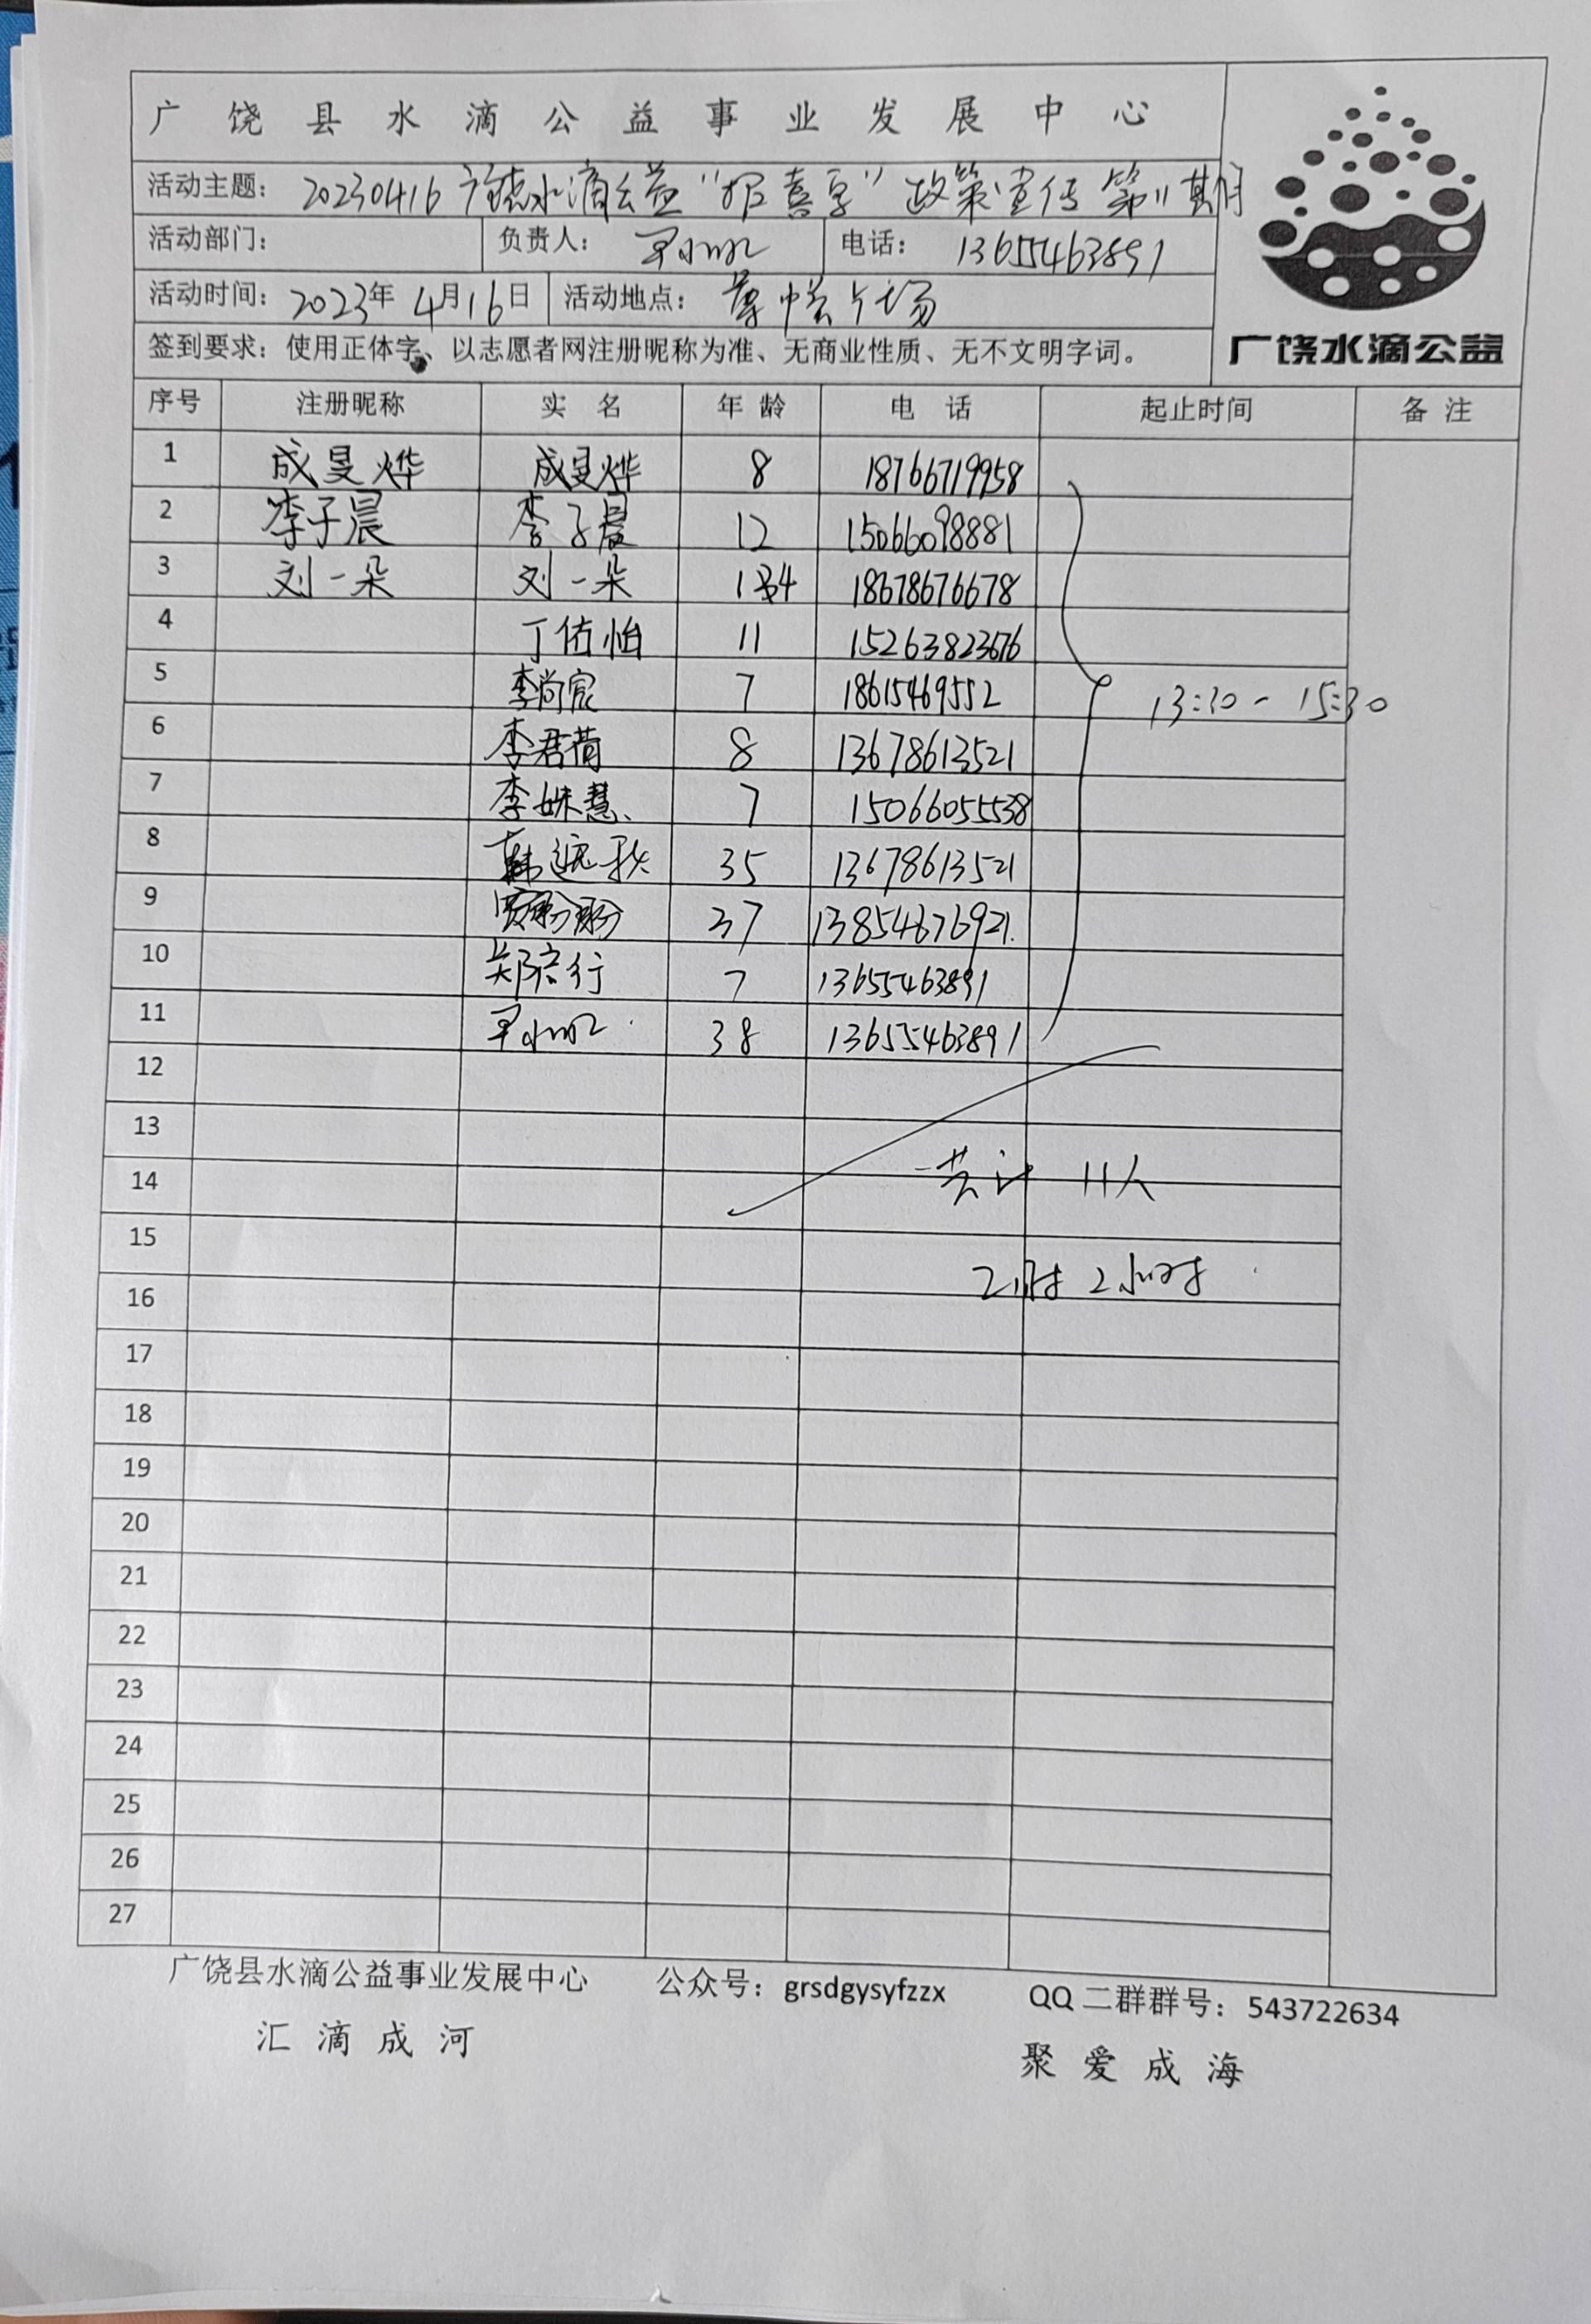 广饶县水滴公益事业发展中心
活动主题： 20230416 广饶水滴公益“ 政策宣传 第11期
活动部门： 负责人： 电话： 13655463891
活动时间： 2023年 4月16日 活动地点： 广场
签到要求：使用正体字、以志愿者网注册昵称为准、无商业性质、无不文明字词。
广饶水滴公益
序号 注册昵称 实 名 年 龄 电 话 起止时间 备 注
1 成旻烨 成旻烨 8 18766719958
2 李子晨 李子晨 12 15066098881
3 刘一朵 刘一朵 14 18678676678
4 丁佑怡 11 15263823676
5 李尚宸 7 18615469552
13:30 - 15:30
6 李君荷 8 13678613521
7 李姝慧 7 15066055538
8 韩 35 13678613521
9 贾 37 13854676921
10 郑 行 7 13655463891
11 38 13655463891
12
13
14
共计 11人
15
2小时
16
17
18
19
20
21
22
23
24
25
26
27
广饶县水滴公益事业发展中心 公众号：grsdgysyfzzx QQ 二群群号：543722634
汇 滴 成 河 聚 爱 成 海